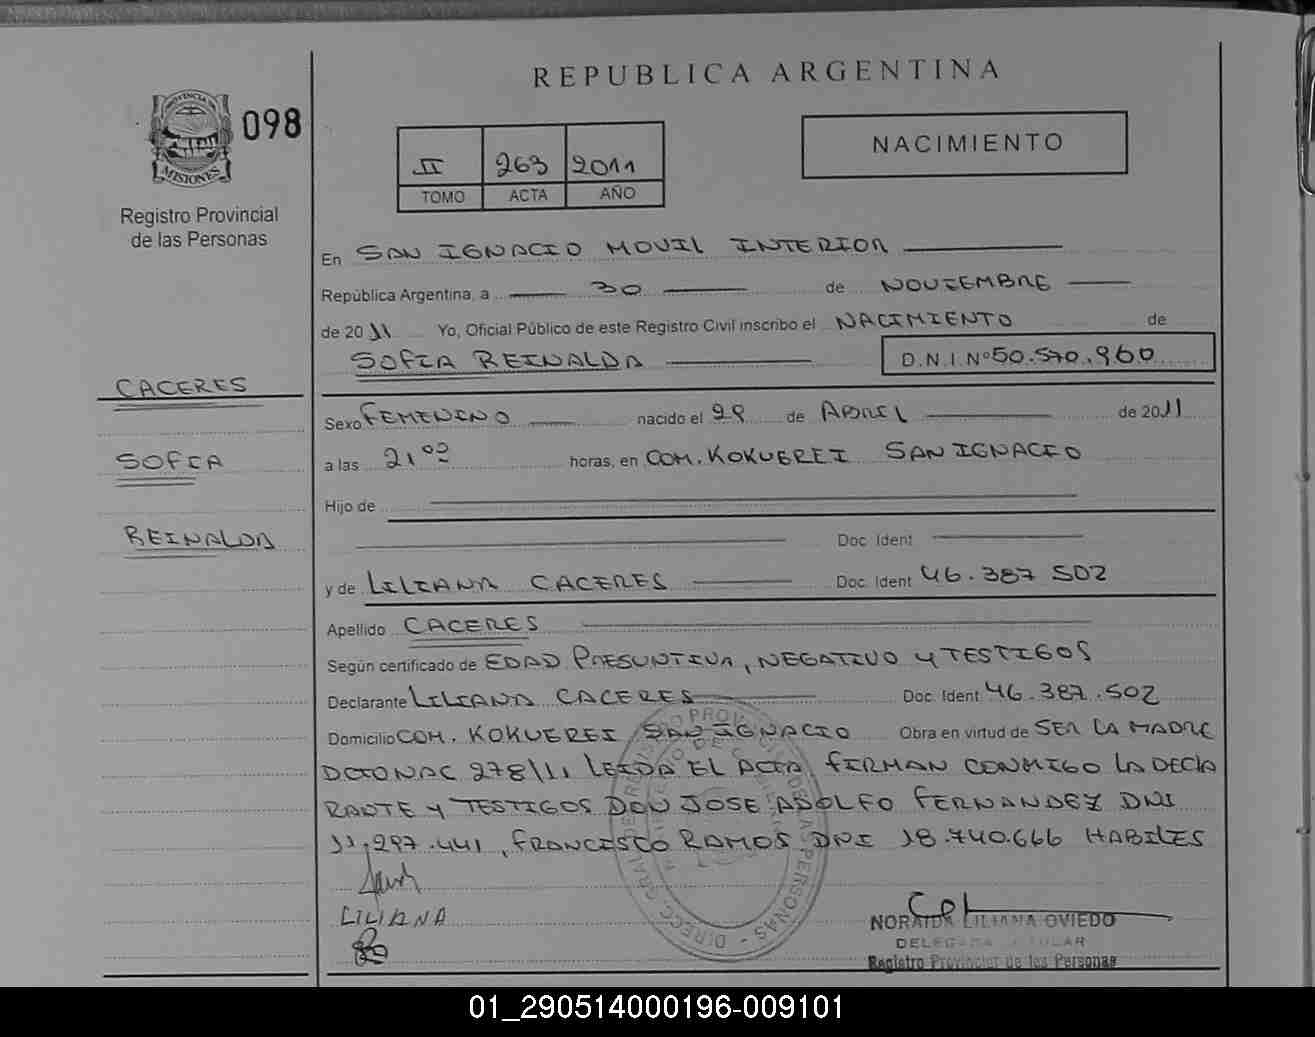 REPUBLICA ARGENTINA
PROVINCIA DE
MISIONES
098
Registro Provincial
de las Personas
II 263 2011
TOMO ACTA AÑO
NACIMIENTO
En SAN IGNACIO MOVIL INTERIOR
República Argentina, a 30 de NOVIEMBRE
de 2011 Yo, Oficial Público de este Registro Civil inscribo el NACIMIENTO de
SOFIA REINALDA D.N.I. Nº 50.570.960
CACERES
SOFIA
REINALDA
Sexo FEMENINO nacido el 29 de ABRIL de 2011
a las 21 00 horas, en COM. KOKUEREI SAN IGNACIO
Hijo de
Doc. Ident
y de LILIANA CACERES Doc. Ident 46.387 502
Apellido CACERES
Según certificado de EDAD PRESUNTIVA, NEGATIVO Y TESTIGOS
Declarante LILIANA CACERES Doc. Ident 46.387.502
Domicilio COM. KOKUEREI SAN IGNACIO Obra en virtud de SER LA MADRE
278/11 LEIDA EL ACTA, FIRMAN CONMIGO LA DECLA
RANTE Y TESTIGOS DON JOSE ADOLFO FERNANDEZ DNI
11.297.441, FRANCISCO RAMOS DNI 18.740.666 HABILES
LILIANA
NORAIDA LILIANA OVIEDO
DELEGADA TITULAR
Registro Provincial de las Personas
01_290514000196-009101